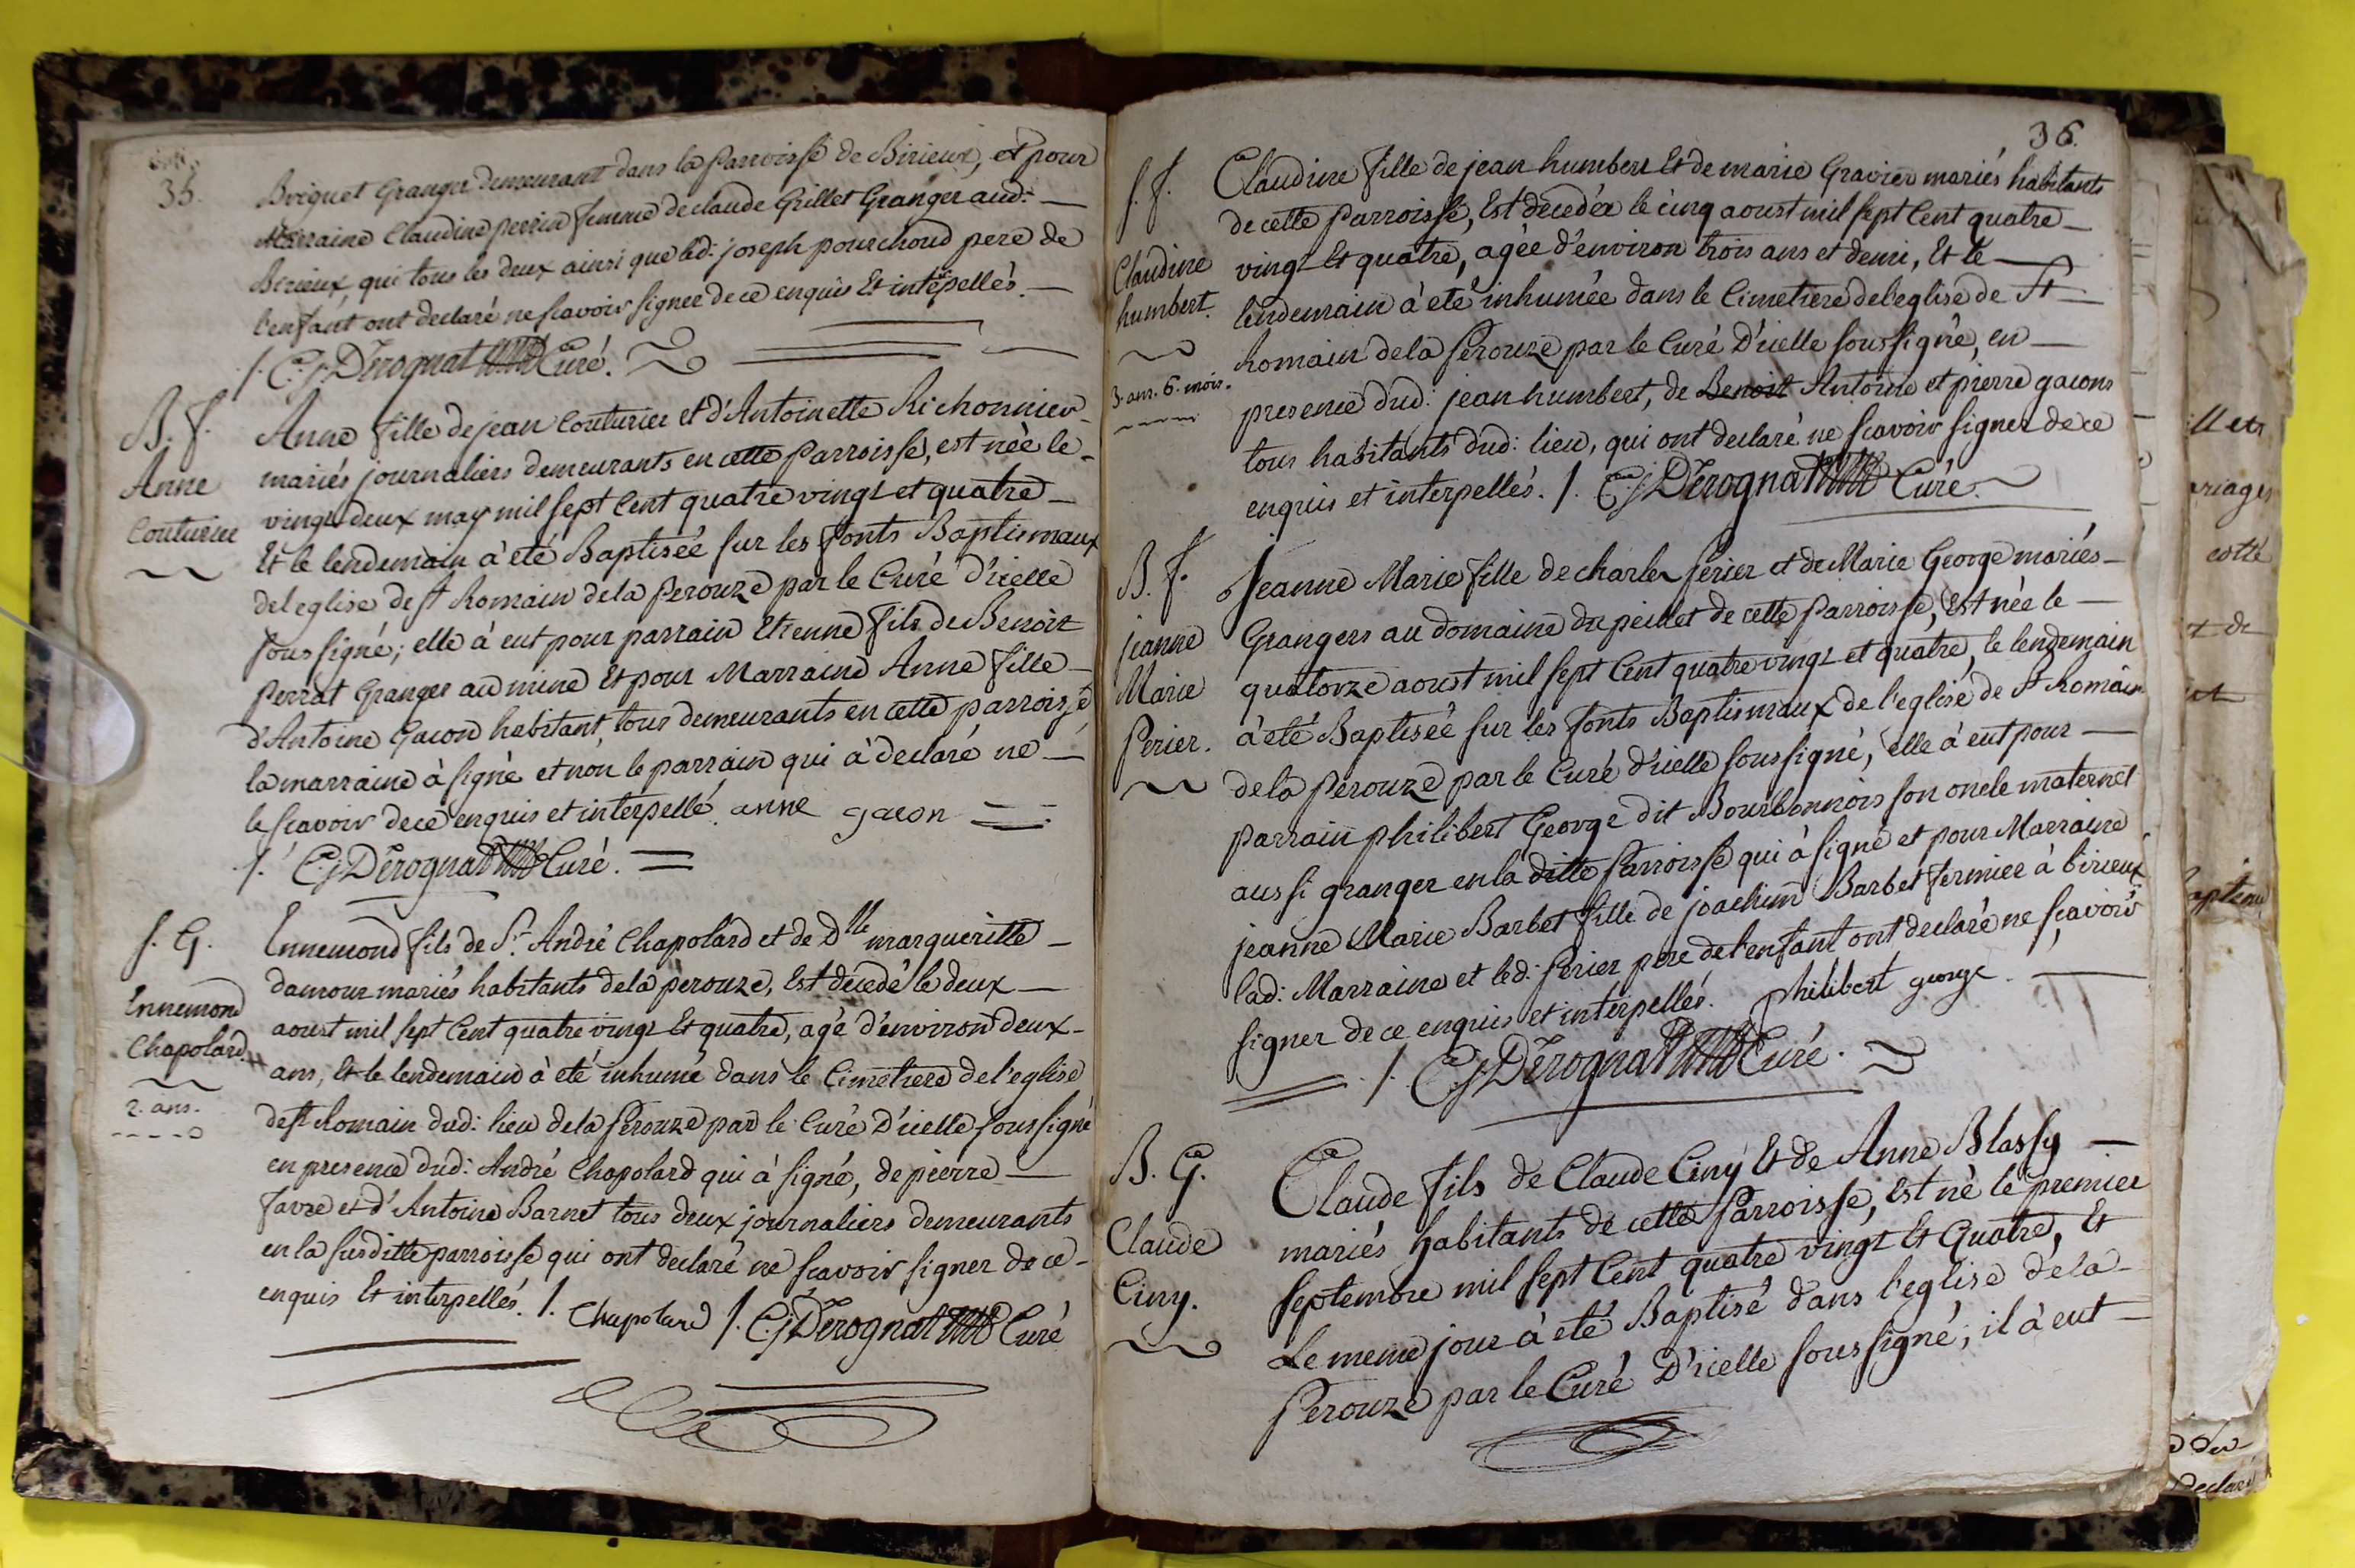 35.
Broquet Granger demeurant dans la Parroisse de Birieux, et pour
Marraine Claudine perrin femme de claude Grillet Granger aud:
Birieux, qui tous les deux ainsi que led: joseph pourchoud pere de
l'enfant ont declaré ne scavoir signer de ce enquis Et interpellés.
/. C. j. Derognat Curé.
B. f.
Anne
Couturier
Anne fille de jean Couturier et d'Antoinette Richonnier
mariés journaliers demeurants en cette Parroisse, est née le
vingt deux may mil sept Cent quatre vingt et quatre
Et le lendemain à eté Baptisée sur les fonts Baptismaux
de l'eglise de st Romain de la Perouze par le Curé d'icelle
soussigné; elle à eut pour parrain Etienne fils de Benoit
Perrat Granger au mine Et pour Marraine Anne fille
d'Antoine Gacon habitant, tous demeurants en cette parroisse
la marraine à signé et non le parrain qui à declaré ne
le scavoir de ce enquis et interpellé. anne gacon
/. C. j. Derognat Curé.
S. G.
Ennemond
Chapolard
2. ans.
Ennemond fils de Sr. André Chapolard et de Dlle margueritte
damour mariés habitants de la perouze, Est décedé le deux
aoust mil sept Cent quatre vingt Et quatre, agé d'environ deux
ans, Et le lendemain à eté inhumé dans le Cimetiere de l'eglise
de st Romain dud: lieu de la Perouze par le Curé D'icelle soussigné
en presence dud: André Chapolard qui à signé, de pierre
favre et d'Antoine Barnet tous deux journaliers demeurants
en la susditte parroisse qui ont declaré ne scavoir signer de ce
enquis Et interpellés. /. Chapolard /. C. j. Derognat Curé
36.
S. f.
Claudine
humbert.
3. ans. 6. mois.
Claudine fille de jean humbert Et de marie Gravier mariés habitants
de cette Parroisse, Est decedée le cinq aoust mil sept Cent quatre
vingt Et quatre, agée d'environ trois ans et demi, Et le
lendemain à eté inhumée dans le Cimetiere de l'eglise de St
Romain de la Perouze par le Curé D'icelle soussigné, en
presence dud: jean humbert, de Benoit Antoine et pierre gacons
tous habitants dud: lieu, qui ont declaré ne scavoir signer de ce
enquis et interpellés. /. C. j. Derognat Curé.
B. f.
jeanne
Marie
Perier.
Jeanne Marie fille de charles Perier et de Marie George mariés
Grangers au domaine du peillet de cette Parroisse, Est née le
quatorze aoust mil sept Cent quatre vingt et quatre, le lendemain
à eté Baptisée sur les fonts Baptismaux de l'eglise de St Romain
de la Perouze par le Curé d'icelle soussigné, elle à eut pour
parrain philibert George dit Bourbonnois son oncle maternel
aussi granger en la ditte Parroisse qui à signé et pour Marraine
jeanne Marie Barbet fille de joachim Barbet fermier à birieux
lad: Marraine et led: Perier pere de l'enfant ont declaré ne scavoir
signer de ce enquis et interpellés. philibert george
/. C. j. Derognat Curé.
B. G.
Claude
Ciny.
Claude fils de Claude Ciny Et de Anne Blassy
mariés habitants de cette Parroisse, Est né le premier
septembre mil sept Cent quatre vingt Et Quatre, Et
Le meme jour à eté Baptisé dans l'eglise de la
Perouze par le Curé D'icelle soussigné; il à eut